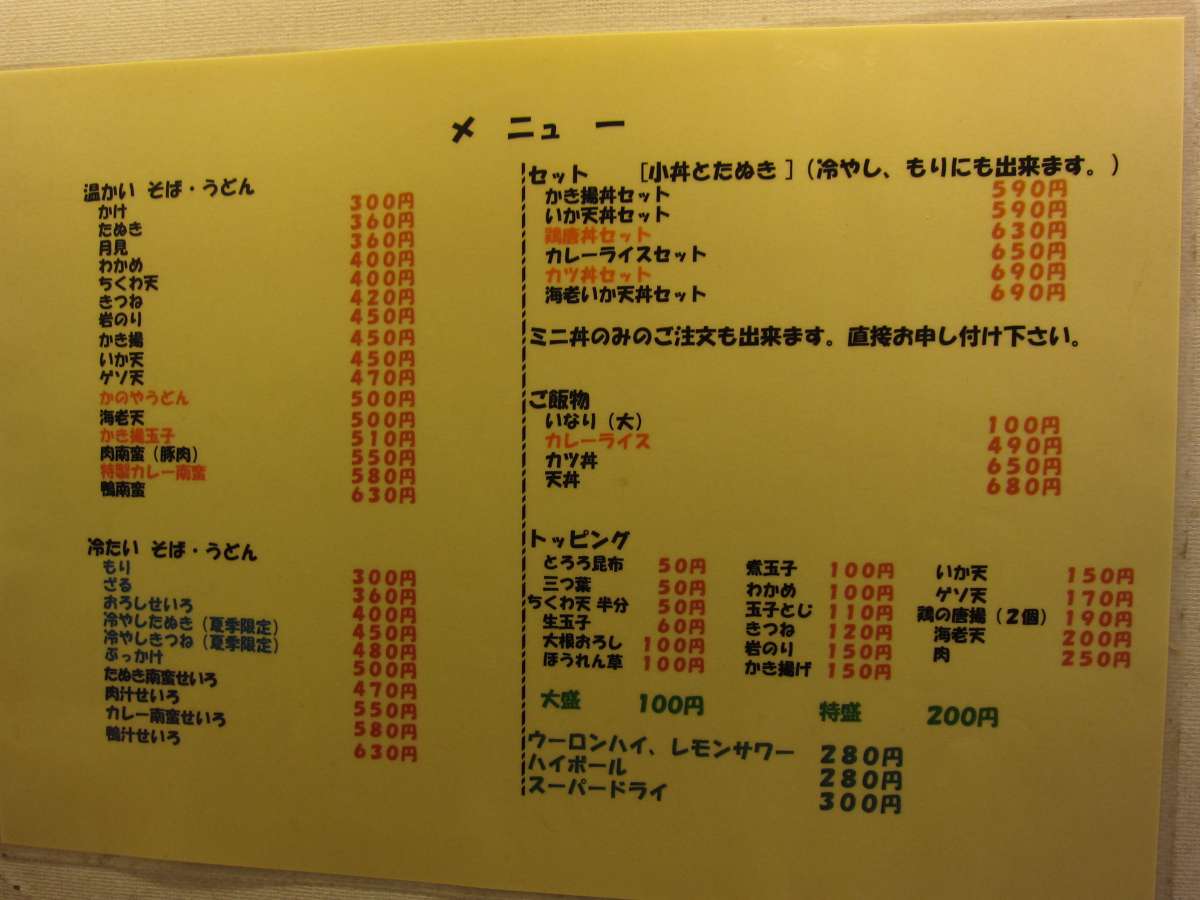 メニュー
温かい そば・うどん
かけ 300円
たぬき 360円
月見 360円
わかめ 400円
ちくわ天 400円
きつね 420円
岩のり 450円
かき揚 450円
いか天 450円
ゲソ天 470円
かのやうどん 500円
海老天 500円
かき揚玉子 510円
肉南蛮（豚肉） 550円
特製カレー南蛮 580円
鴨南蛮 630円
冷たい そば・うどん
もり 300円
ざる 360円
おろしせいろ 400円
冷やしたぬき（夏季限定） 450円
冷やしきつね（夏季限定） 480円
ぶっかけ 500円
たぬき南蛮せいろ 470円
肉汁せいろ 550円
カレー南蛮せいろ 580円
鴨汁せいろ 630円
セット ［小丼とたぬき］（冷やし、もりにも出来ます。）
かき揚丼セット 590円
いか天丼セット 590円
鶏唐丼セット 630円
カレーライスセット 650円
カツ丼セット 690円
海老いか天丼セット 690円
ミニ丼のみのご注文も出来ます。直接お申し付け下さい。
ご飯物
いなり（大） 100円
カレーライス 490円
カツ丼 650円
天丼 680円
トッピング
とろろ昆布 50円 煮玉子 100円 いか天 150円
三つ葉 50円 わかめ 100円 ゲソ天 170円
ちくわ天 半分 50円 玉子とじ 110円 鶏の唐揚（2個） 190円
生玉子 60円 きつね 120円 海老天 200円
大根おろし 100円 岩のり 150円 肉 250円
ほうれん草 100円 かき揚げ 150円
大盛 100円 特盛 200円
ウーロンハイ、レモンサワー 280円
ハイボール 280円
スーパードライ 300円